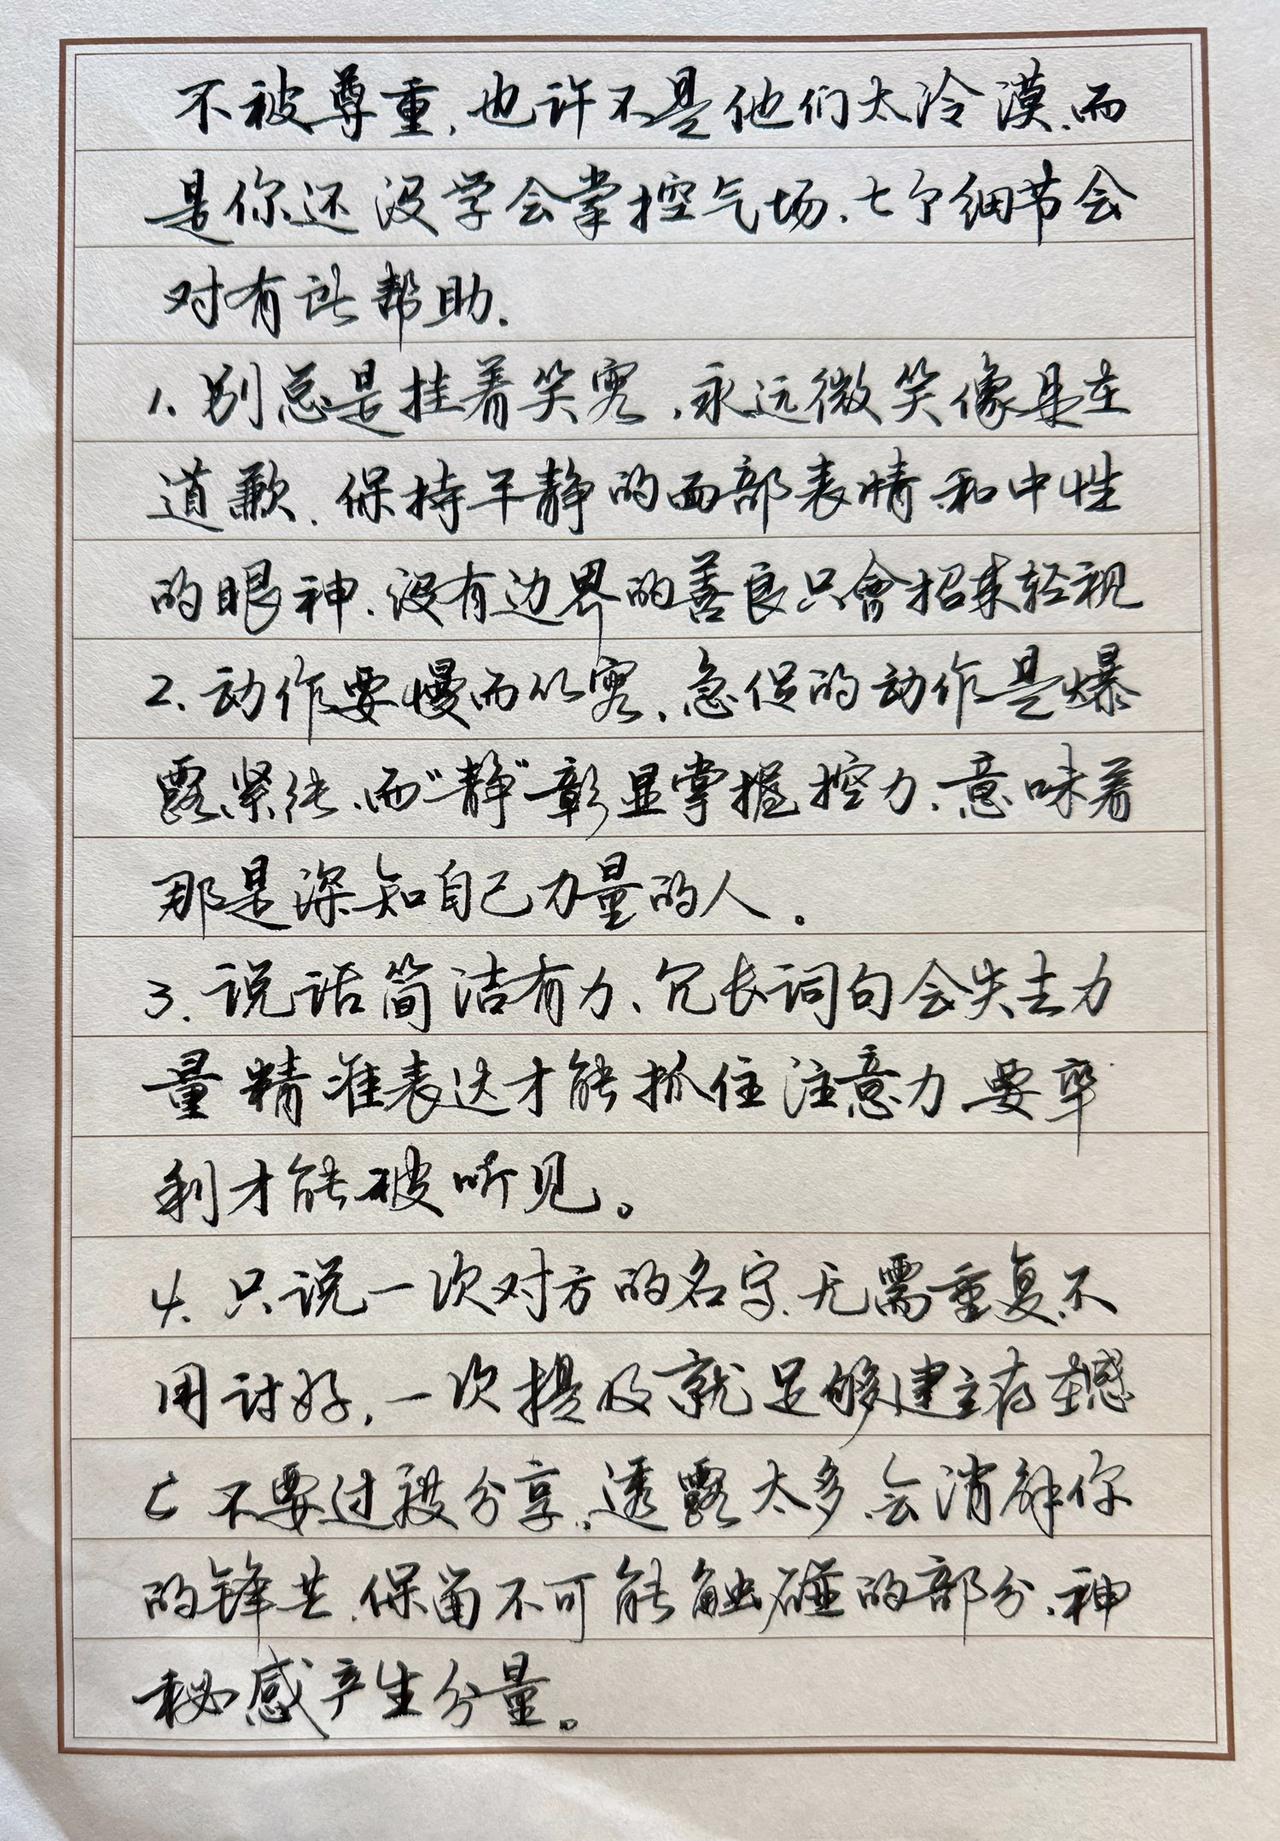 不被尊重，也许不是他们太冷漠、而
是你还没学会掌控气场、七个细节会
对有些帮助.
1、别总是挂着笑容、永远微笑像是在
道歉、保持平静的面部表情和中性
的眼神、没有边界的善良只會招来轻视
2、动作要慢而从容、急促的动作是爆
露紧张、而“静”彰显掌握控力、意味着
那是深知自己力量的人。
3、说话简洁有力、冗长词句会失去力
量精准表达才能抓住注意力、要犀
利才能被听见。
4、只说一次对方的名字、无需重复、不
用讨好，一次提及就足够建立存在感
5 不要过被分享、透露太多、会消解你
的锋芒、保留不可能触碰的部分、神
秘感产生分量。